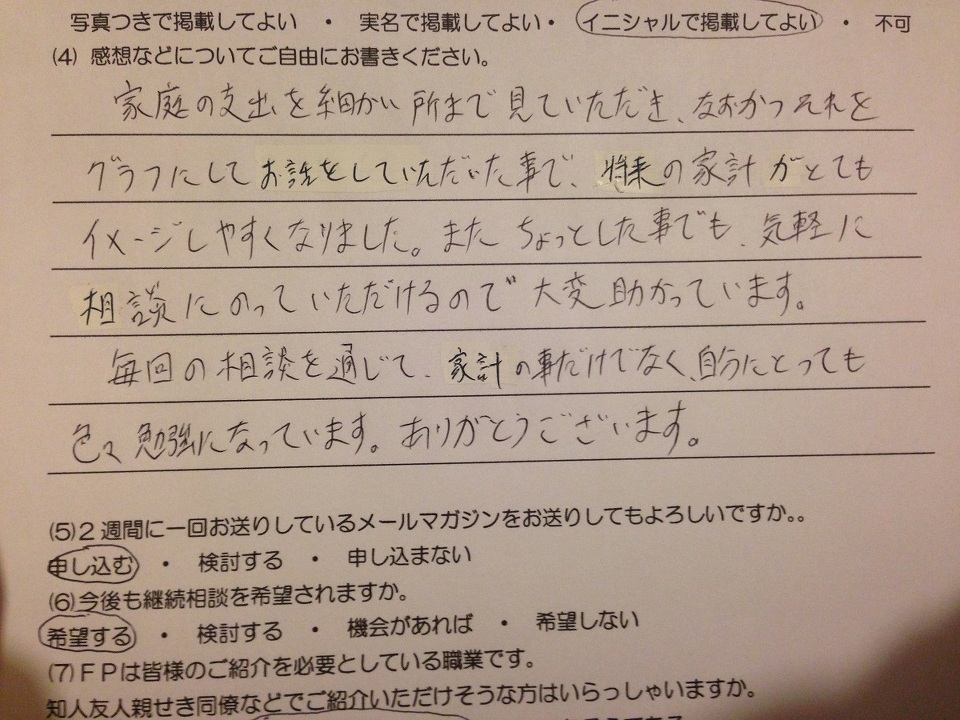 写真つきで掲載してよい ・ 実名で掲載してよい・ イニシャルで掲載してよい ・ 不可
(4) 感想などについてご自由にお書きください。
家庭の支出を細かい所まで見ていただき、なおかつそれを
グラフにしてお話をしていただいた事で、将来の家計がとても
イメージしやすくなりました。またちょっとした事でも、気軽に
相談にのっていただけるので大変助かっています。
毎回の相談を通じて、家計の事だけでなく、自分にとっても
色々勉強になっています。ありがとうございます。
(5)2週間に一回お送りしているメールマガジンをお送りしてもよろしいですか。。
申し込む ・ 検討する ・ 申し込まない
(6)今後も継続相談を希望されますか。
希望する ・ 検討する ・ 機会があれば ・ 希望しない
(7)FPは皆様のご紹介を必要としている職業です。
知人友人親せき同僚などでご紹介いただけそうな方はいらっしゃいますか。